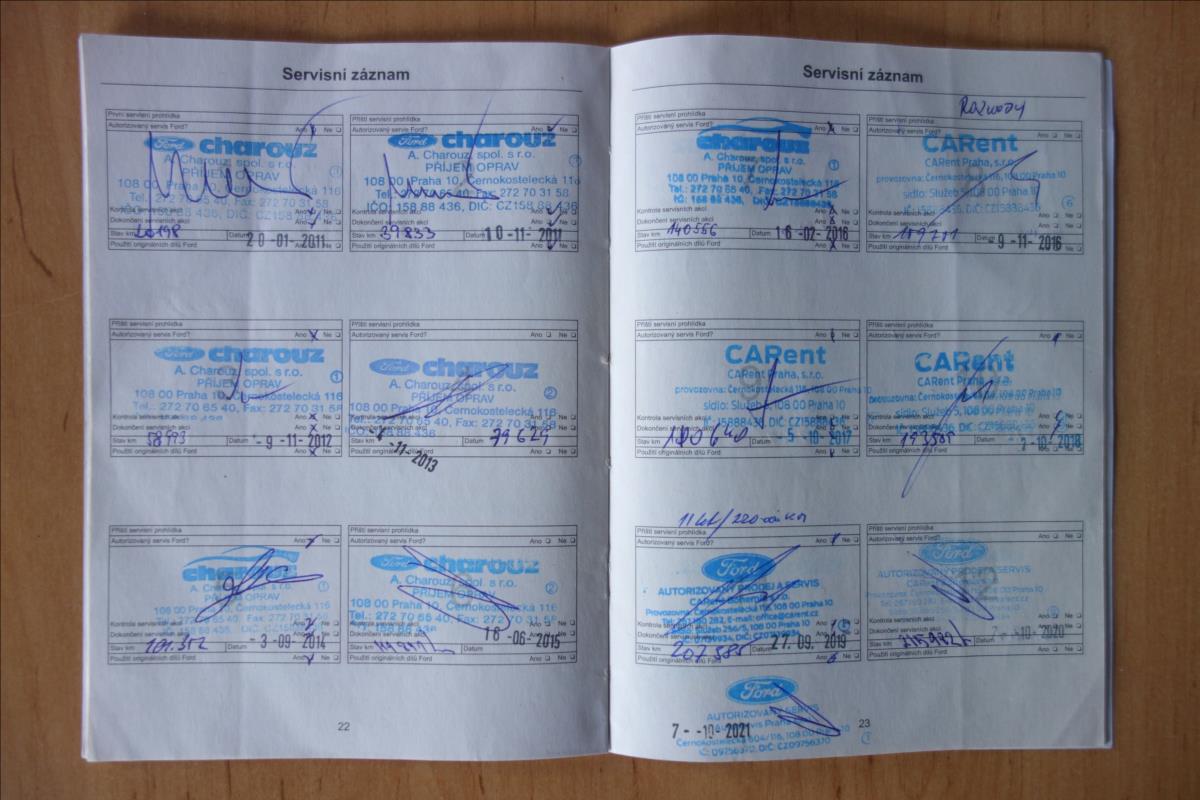 Servisní záznam
První servisní prohlídka
Autorizovaný servis Ford? Ano Ne
Ford charouz
A. Charouz, spol. s r.o.
PŘÍJEM OPRAV
108 00 Praha 10, Černokostelecká 116
Tel.: 272 70 65 40, Fax: 272 70 31 58
IČO: 158 88 436, DIČ: CZ158
Kontrola servisních akcí Ano Ne
Dokončení servisních akcí Ano Ne
Stav km 20198 Datum 20-01-2011
Použití originálních dílů Ford Ano Ne
Příští servisní prohlídka
Autorizovaný servis Ford? Ano Ne
Ford charouz
A. Charouz, spol. s r.o.
PŘÍJEM OPRAV
108 00 Praha 10, Černokostelecká 116
Tel.: 272 70 65 40, Fax: 272 70 31 58
IČO: 158 88 436, DIČ: CZ158 88 436
Kontrola servisních akcí Ano Ne
Dokončení servisních akcí Ano Ne
Stav km 39833 Datum 10-11-2011
Použití originálních dílů Ford Ano Ne
Příští servisní prohlídka
Autorizovaný servis Ford? Ano Ne
Ford charouz
A. Charouz, spol. s r.o.
PŘÍJEM OPRAV
108 00 Praha 10, Černokostelecká 116
Tel.: 272 70 65 40, Fax: 272 70 31 58
Kontrola servisních akcí Ano Ne
Dokončení servisních akcí Ano Ne
Stav km 58993 Datum -9-11-2012
Použití originálních dílů Ford Ano Ne
Příští servisní prohlídka
Autorizovaný servis Ford? Ano Ne
Ford charouz
A. Charouz, spol. s r.o.
PŘÍJEM OPRAV
108 00 Praha 10, Černokostelecká 116
Tel.: 272 70 65 40, Fax: 272 70 31 58
Kontrola servisních akcí Ano Ne
Dokončení servisních akcí Ano Ne
Stav km -11-2013 Datum 79624
Použití originálních dílů Ford Ano Ne
Příští servisní prohlídka
Autorizovaný servis Ford? Ano Ne
charouz
A. Charouz, spol. s r.o.
PŘÍJEM OPRAV
108 00 Praha 10, Černokostelecká 116
Kontrola servisních akcí Ano Ne
Dokončení servisních akcí Ano Ne
Stav km 101.312 Datum -3-09-2014
Použití originálních dílů Ford Ano Ne
Příští servisní prohlídka
Autorizovaný servis Ford? Ano Ne
Ford charouz
A. Charouz, spol. s r.o.
PŘÍJEM OPRAV
108 00 Praha 10, Černokostelecká 116
Tel.: 272 70 65 40, Fax: 272 70 31 58
Kontrola servisních akcí Ano Ne
Dokončení servisních akcí Ano Ne
Stav km Datum 16-06-2015
Použití originálních dílů Ford Ano Ne
22
Servisní záznam
Příští servisní prohlídka
Autorizovaný servis Ford? Ano Ne
charouz
A. Charouz, spol. s r.o.
PŘÍJEM OPRAV
108 00 Praha 10, Černokostelecká 116
Tel.: 272 70 65 40, Fax: 272 70 31 58
Kontrola servisních akcí Ano Ne
Dokončení servisních akcí Ano Ne
Stav km 140556 Datum 16-02-2016
Použití originálních dílů Ford Ano Ne
Rozvody
Příští servisní prohlídka
Autorizovaný servis Ford? Ano Ne
CARent
CARent Praha, s.r.o.
provozovna: Černokostelecká 116, 108 00 Praha 10
Kontrola servisních akcí Ano Ne
Dokončení servisních akcí Ano Ne
Stav km Datum 9-11-2016
Použití originálních dílů Ford Ano Ne
Příští servisní prohlídka
Autorizovaný servis Ford? Ano Ne
CARent
CARent Praha, s.r.o.
provozovna: Černokostelecká 116, 108 00 Praha 10
Kontrola servisních akcí Ano Ne
Dokončení servisních akcí Ano Ne
Stav km Datum -5-10-2017
Použití originálních dílů Ford Ano Ne
Příští servisní prohlídka
Autorizovaný servis Ford? Ano Ne
CARent
CARent Praha, s.r.o.
Kontrola servisních akcí Ano Ne
Dokončení servisních akcí Ano Ne
Stav km 193585 Datum 2-10-2018
Použití originálních dílů Ford Ano Ne
11 let/220
Příští servisní prohlídka
Autorizovaný servis Ford? Ano Ne
Ford
AUTORIZOVANÝ PRODEJ A SERVIS
Provozovna: Černokostelecká 116, 108 00 Praha 10
Kontrola servisních akcí Ano Ne
Dokončení servisních akcí Ano Ne
Stav km 207585 Datum 27.09.2019
Použití originálních dílů Ford Ano Ne
Příští servisní prohlídka
Autorizovaný servis Ford? Ano Ne
Ford
AUTORIZOVANÝ PRODEJ A SERVIS
Kontrola servisních akcí Ano Ne
Dokončení servisních akcí Ano Ne
Stav km Datum -10-2020
Použití originálních dílů Ford Ano Ne
Ford
AUTORIZOVANÝ SERVIS
7--10-2021
Černokostelecká 604/116, 108 00
09756370, DIČ: CZ09756370
23